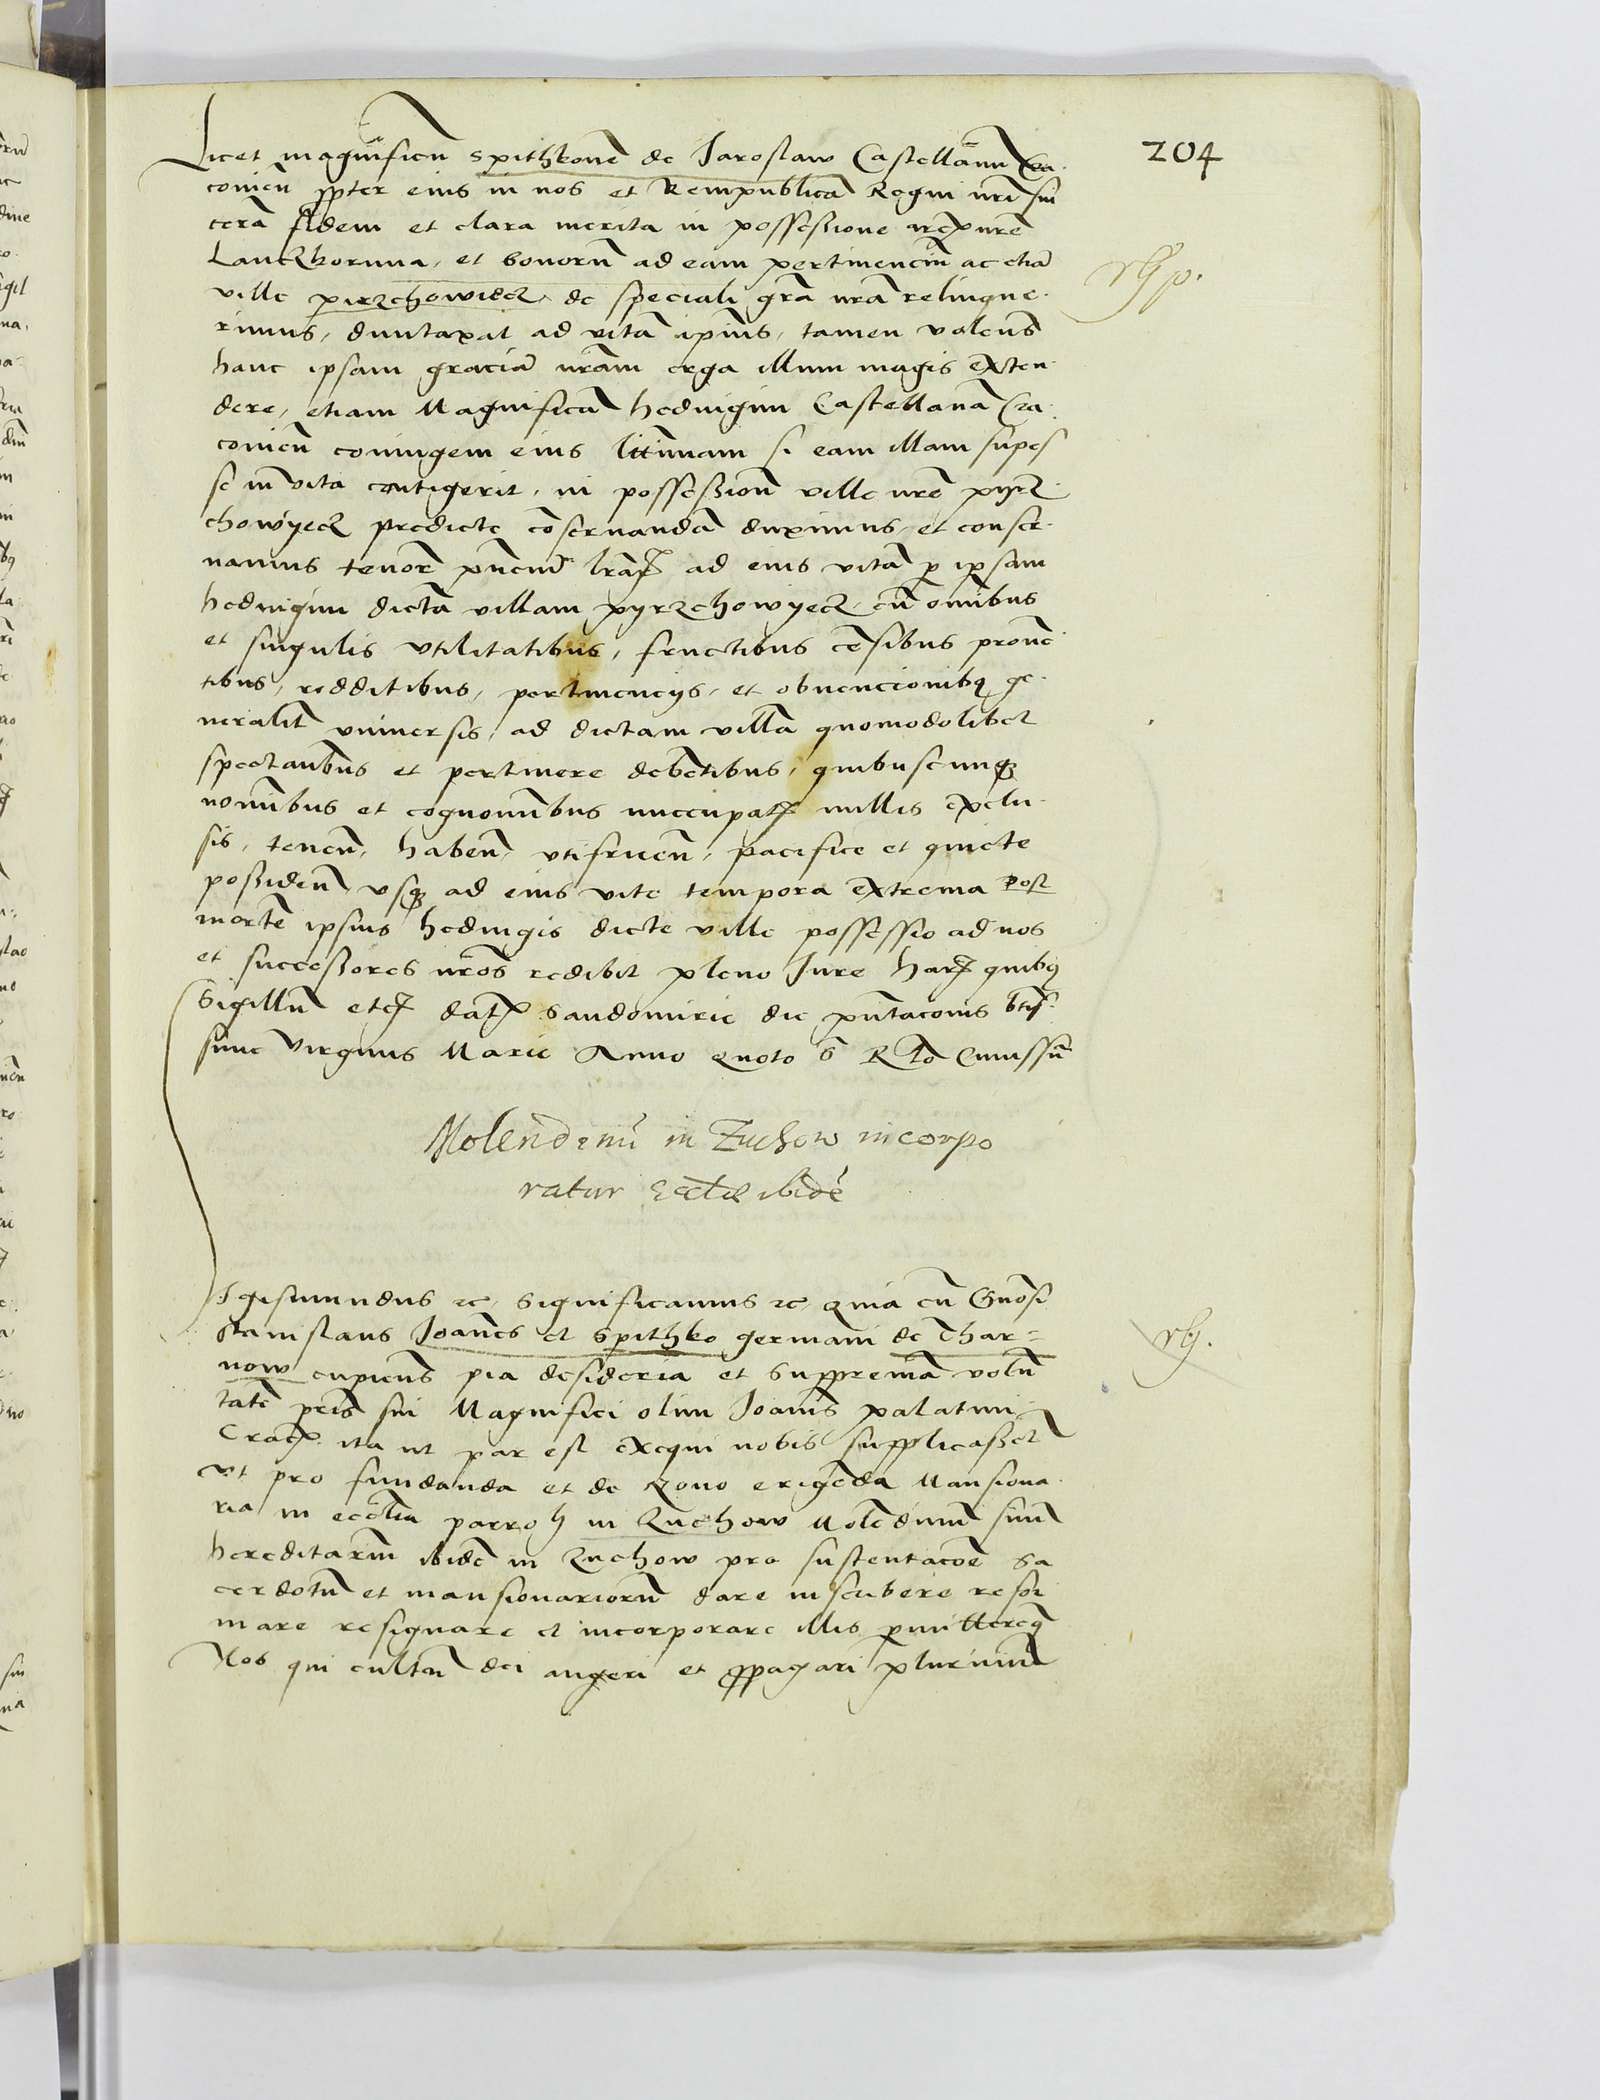 204
Licet magnificu͞ Spithkone͞ de Jaroslaw Castellanu͞ Cra-
conien͞ ꝓpter eius in nos et Rempublica͞ Regni nr̃i sin
cera͞ fidem et clara merita in possessione arcis nr̃e
Lanczkorunna, et bonoru͞ ad eam pertinenciu͞ ac etia͞
ville pirzchowiecz, de speciali gr̃a nr̃a relinque-
rimus, duntaxat ad vita͞ ip̃ius, tamen volens
hanc ipsam gracia͞ nr̃am erga illum magis exten-
dere, etiam Magnifica͞ hedvigim Castellana͞ Cra-
conien͞ coniugem eius l̃ittimam si eam illam supes
se in vita contigerit, in possession͞ ville nr̃e pyrz-
chowyecz predicte co͞seruanda͞ duximus, et conser-
uamus tenor͞e pñciu͞ lr̃aꝝ ad eius vita͞ p̱ ipsam
hedvigim dicta͞ villam pyrzchowyecz, cu͞ omnibus
et singulis vtilitatibus, fructibus ce͞sibus prouen
tibus, redditibus, pertinencys, et obuencionibꝯ ge-
neralit͞ vniuersis, ad dictam villa͞ quomodolibet
spectan͞bus et pertinere debe͞tibus, quibuscunqꝫ
nominibus et cognominibus nuccupatꝭ nullis exclu-
sis, tenen͞, haben͞, vtifruen͞, pacifice et quiete
possiden͞, vsqꝫ ad eius vite tempora extrema post
morte͞ ipsius hedvigis dicte ville possessio ad nos
et successores nr̃os redibit pleno Jure harꝫ quibꝯ
Sigillu͞ etcꝫ datꝭ Sandomirie die pñtaconis btiss-
sime Virginis Marie Anno quoto s͞ R to͞ Cmissu͞
Molendinu͞ in Zuchow incorpo
ratur Eccl̃ie ibide͞
Igismundus ꝛc, Significamus ꝛc, quia cu͞ Gn̄osi
Stanislaus Joan͞es et Spithko germani de Thar=
now cupien͞s pia desideria et Supprema͞ volu͞
tate͞ pr̃is sui Magnifici olim Joan͞is palatini
Cracꝭ ita vt par est exequi nobis supplicasset
vt pro fundanda et de Nouo erige͞da Mansiona-
ria in eccl̃ia parroch in Zuchow Mole͞dinum suu͞
hereditariu͞ ibide͞ in Zuchow pro sustentaco͞e Sa
cerdotu͞ et mansionarioru͞ dare inscribere refor
mare resignare et incorporare illis p̱mitteremꝫ
Nos qui cultu͞ dei augeri et ꝓpagari plurimu͞